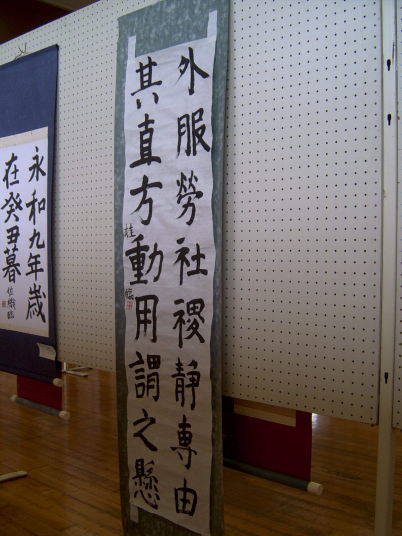 外服勞社稷静専由
其直方動用謂之懸
永和九年歳
在癸丑暮